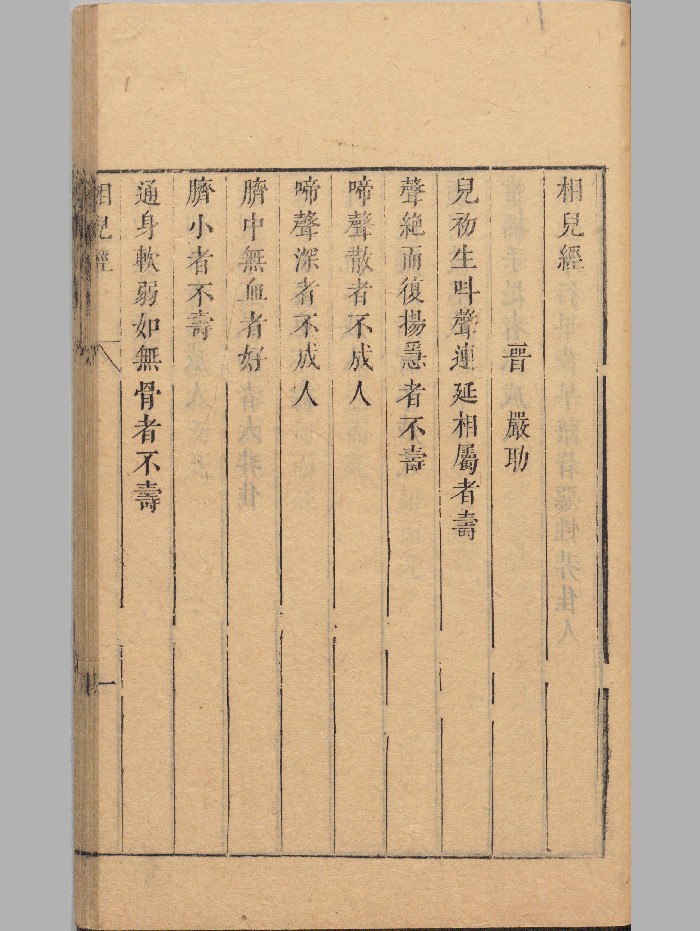 相兒經
晉 嚴助
兒初生呌聲連延相屬者壽
聲絶而復揚急者不壽
啼聲散者不成人
啼聲深者不成人
臍中無血者好
臍小者不壽
通身軟弱如無骨者不壽
相兒經
一